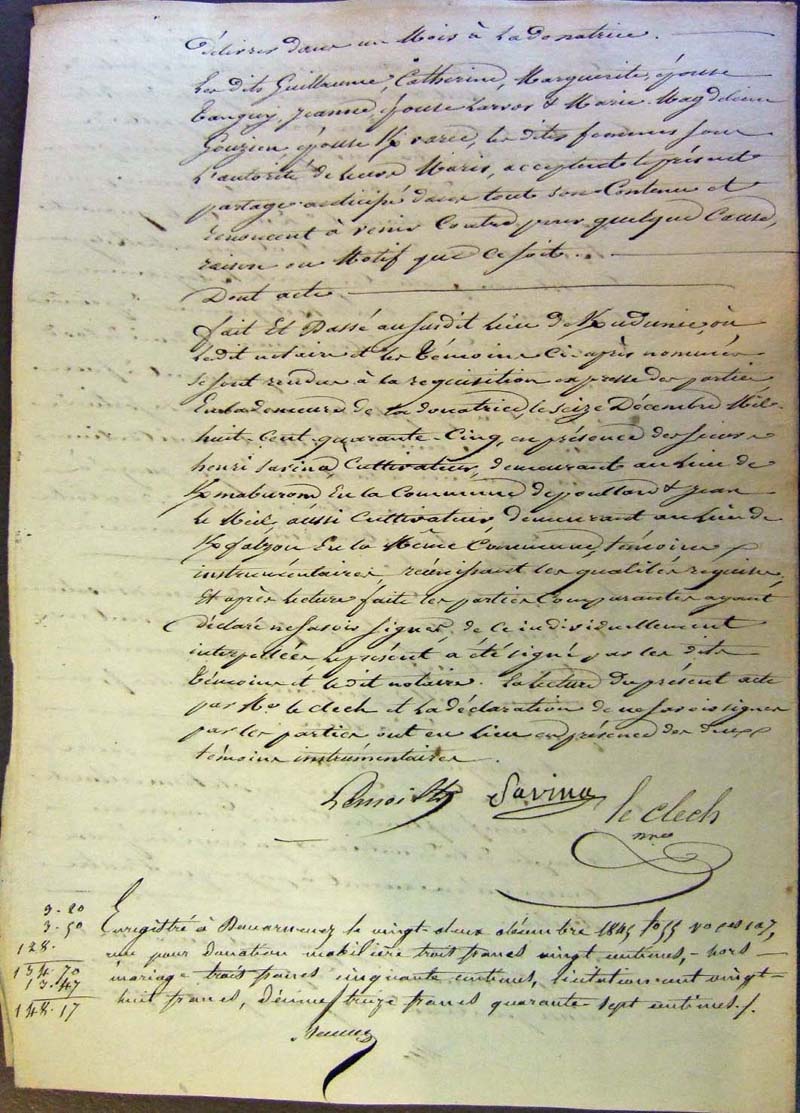 délivrer dans un Mois à La donatrice.
Les dits Guillaume, Catherine, Marguerite, épouse
Tanguy, Jeanne épouse Larvor & Marie-Magdeleine
Gouzien épouse K/varec, les dites femmes sous
L'autorité de leurs Maris, acceptent le présent
partage anticipé dans tout son Contenu et
renoncent à venir Contre pour quelque Cause,
raison ou Motif que ce soit.
Dont acte
fait Et Passé au susdit Lieu de où
Ledit notaire et les témoins Ci-après nommés
se sont rendus à La requisition expresse des parties
En La demeure de La donatrice, le seize Décembre Mil-
huit-Cent-quarante-Cinq, en présence des sieurs
henri Savina, Cultivateur, demeurant au Lieu de
En La Commune de poullan & Jean
Le aussi Cultivateur, demeurant au Lieu de
En La Même Commune, témoins
instrumentaires réunissant les qualités requises
Et après Lecture faite les parties Comparantes ayant
Déclaré ne savoir signer de ce individuellement
interpellées, le présent a été signé par les dits
témoins et le dit notaire. La Lecture du présent acte
par Me le clech et La déclaration de ne savoir signer
par les parties ont eu Lieu en présence des deux
témoins instrumentaires.
Savina le clech
nre
3-20
3-50
128.
134.70
13.47
148.17
Enregistré à Douarnenez le vingt-deux décembre 1845 fo 55 vo ces 1 a 7,
reçu pour donation mobilière trois francs vingt centimes, - hors
mariage trois francs cinquante centimes, licitation cent vingt-
huit francs, décime treize francs quarante sept centimes./.